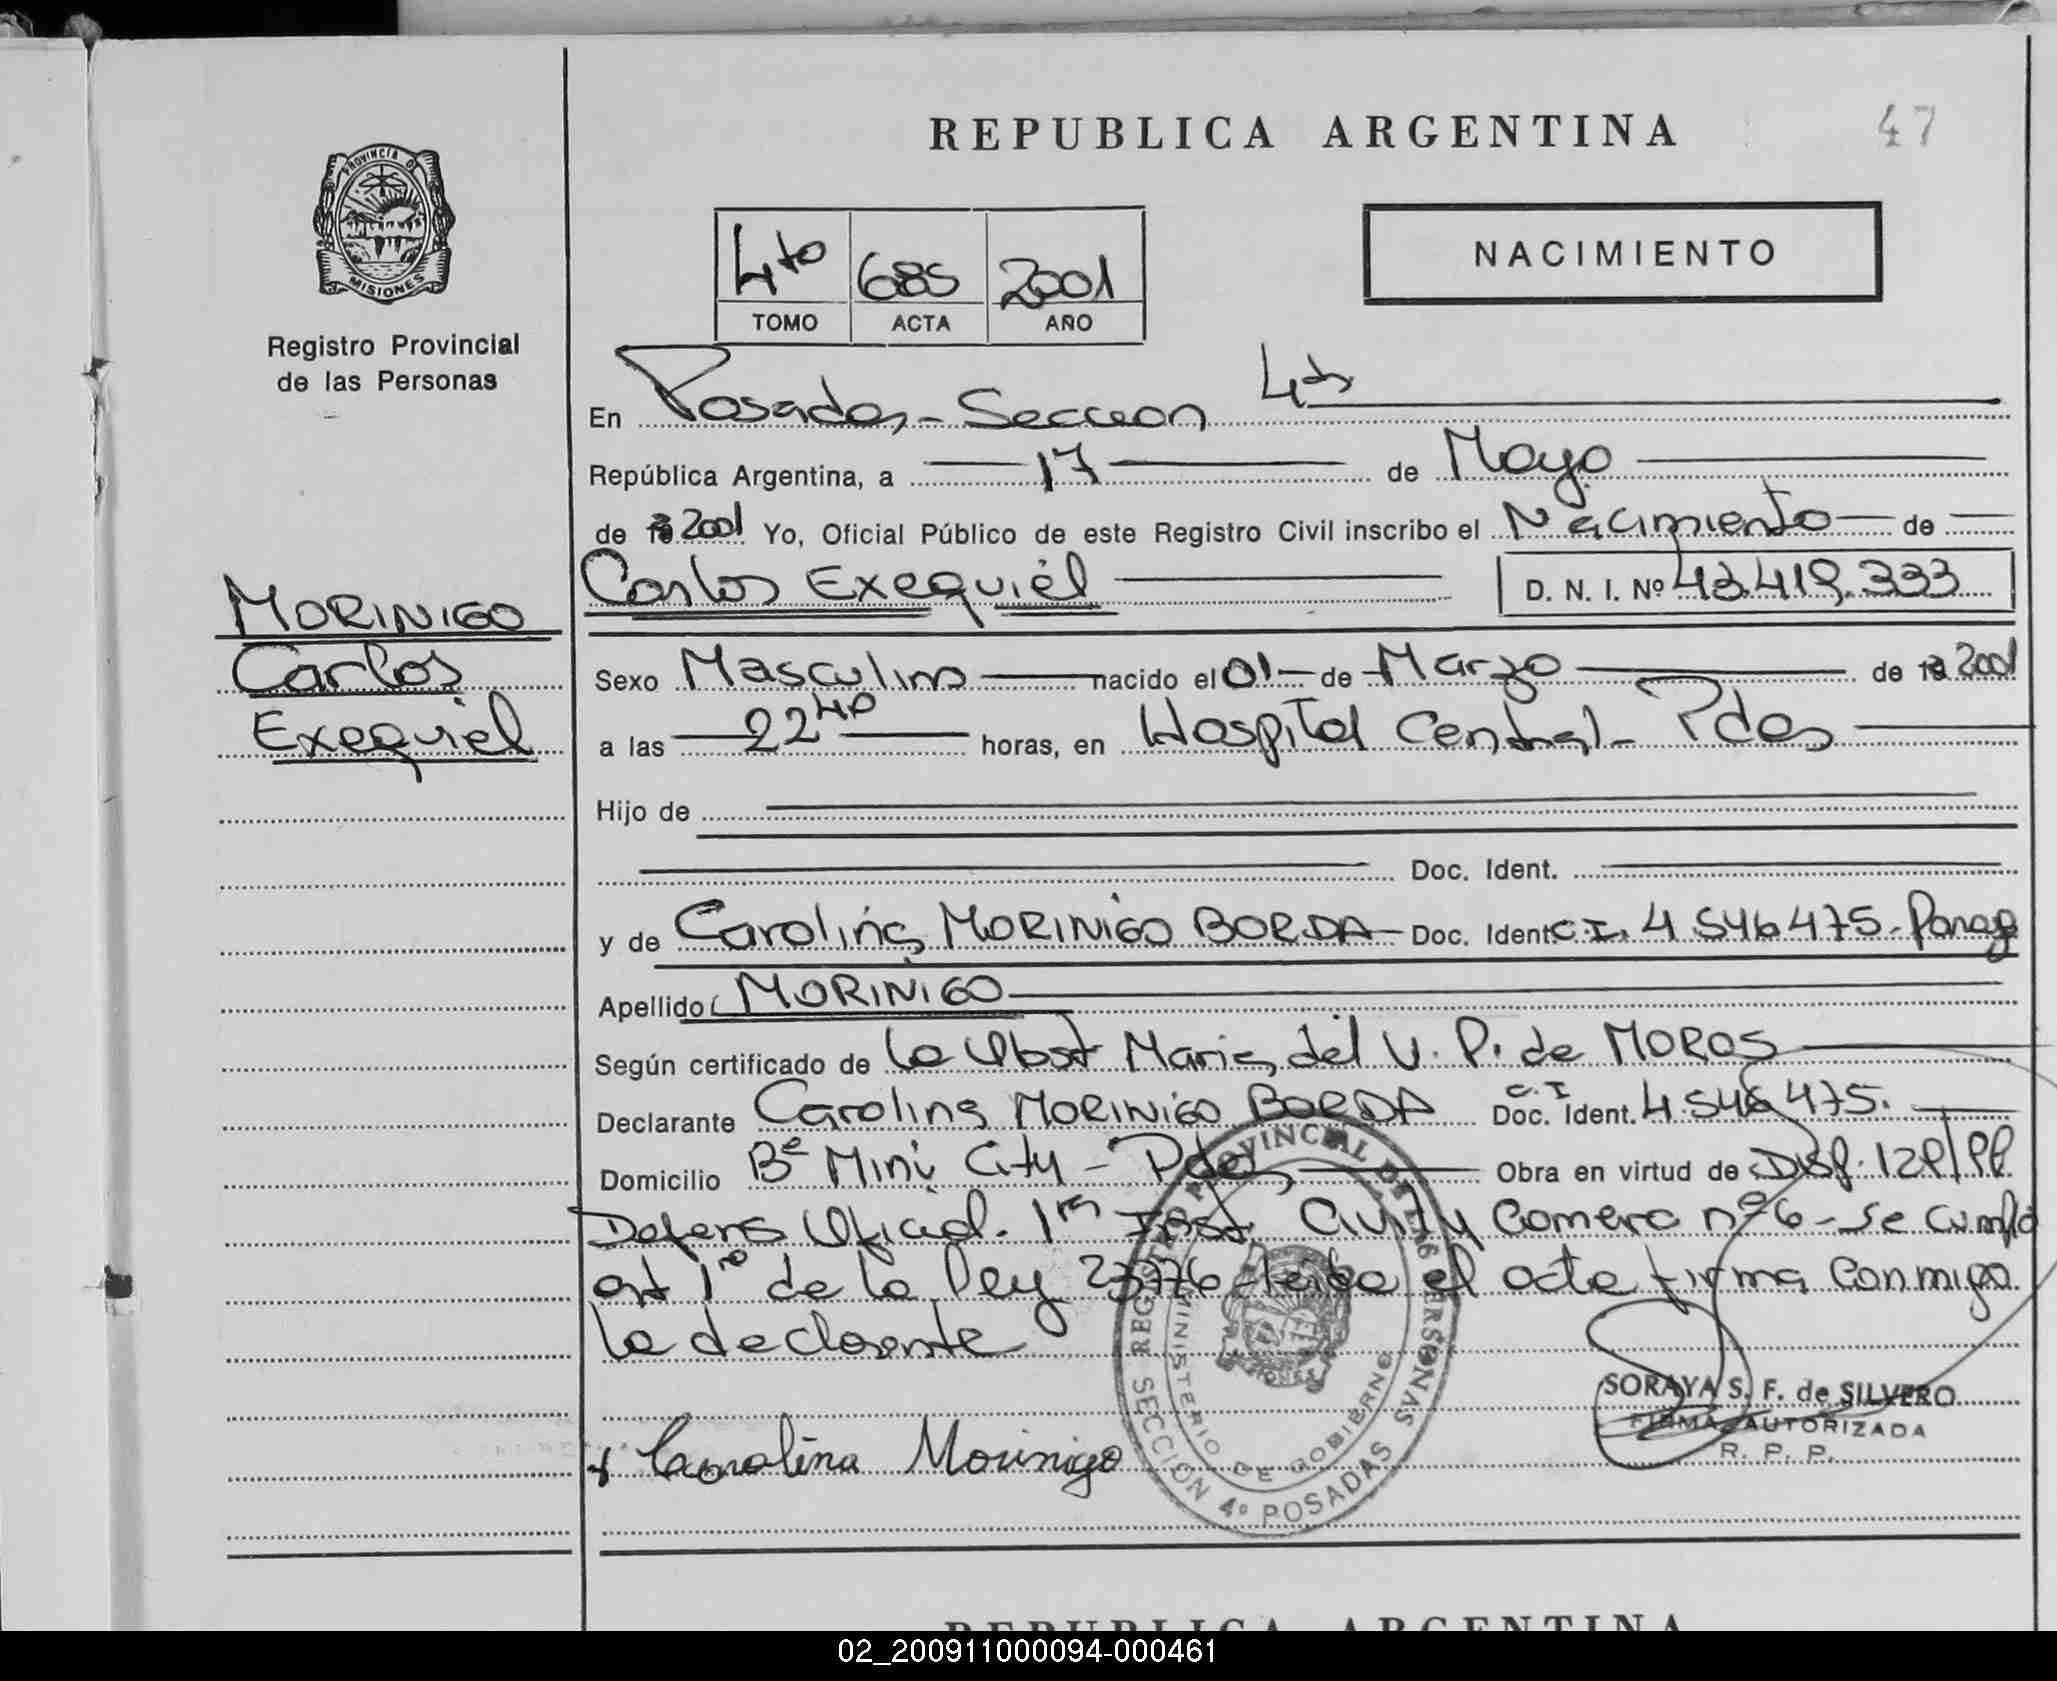 REPUBLICA ARGENTINA
47
PROVINCIA DE
MISIONES
Registro Provincial
de las Personas
4to 685 2001
TOMO ACTA AÑO
NACIMIENTO
En Posadas - Seccion 4ta
República Argentina, a 17 de Mayo
de 19 2001 Yo, Oficial Público de este Registro Civil inscribo el Nacimiento de
Carlos Exequiel D. N. I. Nº 43.419.333
MORINIGO
Carlos
Exequiel
Sexo Masculino nacido el 01 de Marzo de 19 2001
a las 22 40 horas, en Hospital Central - Pdas
Hijo de
Doc. Ident.
y de Carolina MORINIGO BORDA Doc. Ident. C.I. 4.546475 - Parag
Apellido MORINIGO
Según certificado de la Obst Maria del V. P. de MOROS
Declarante Carolina MORINIGO BORDA Doc. Ident. C.I 4.546475.
Domicilio Bº Mini City - Pdas Obra en virtud de Disp.
Defens Oficial. 1ra Inst. Civil y Comerc nº 6 - se cumplo
art 1ro de la Ley 23776 - leida el acta firma conmigo
la declarante
REGISTRO PROVINCIAL DE LAS PERSONAS
MINISTERIO DE GOBIERNO
SECCION 4º POSADAS
MISIONES
SORAYA S. F. de SILVERO
FIRMA AUTORIZADA
R. P. P.
x Carolina Morinigo
REPUBLICA ARGENTINA
02_200911000094-000461